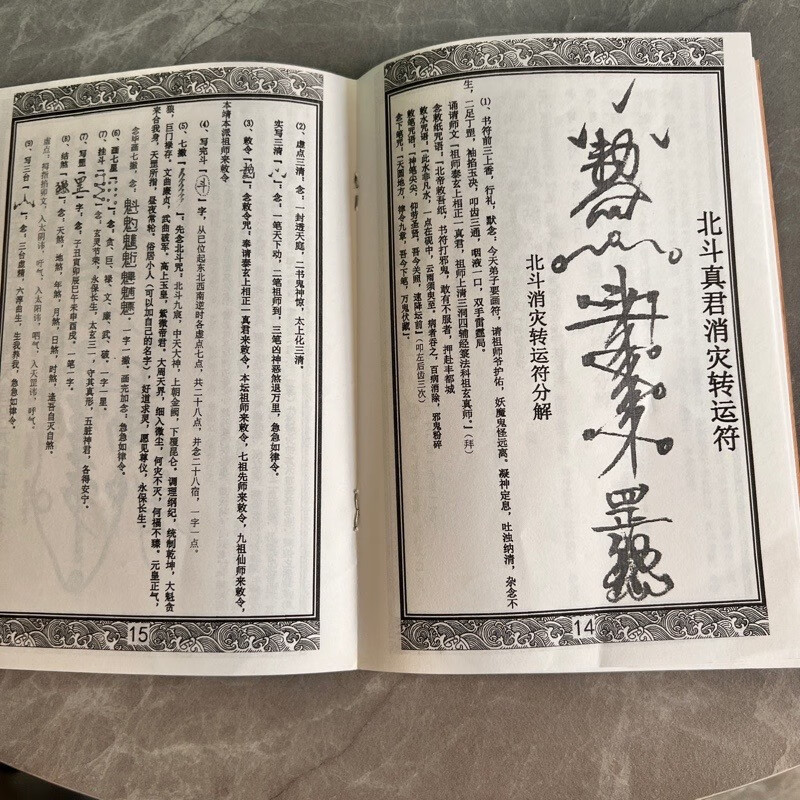 北斗真君消灾转运符
北斗消灾转运符分解
(1)、书符前三上香，行礼，默念：今天弟子要画符，请祖师爷护佑，妖魔鬼怪远离。凝神定息，吐浊纳清，杂念不
生，二足丁罡，袖掐玉决，叩齿三通，咽液一口，双手雷霆局。
诵请师文「祖师泰玄上相正一真君，祖师上清三洞四辅经箓法科祖玄真师。」（拜）
念敕纸咒语：「北帝敕吾纸，书符打邪鬼，敢有不服者，押赴丰都城
敕水咒语：「此水非凡水，一点在砚中，云雨须臾至，病者吞之，百病消除，邪鬼粉碎
敕笔咒语：「神笔尖尖，仰劳圣贤，吾今关照，速降坛前」（叩左后齿三次）
念下笔咒，「天圆地方，律令九章，吾今下笔，万鬼伏藏」。
14
(2)、虚点三清：念：一封透天庭，二书鬼神惊，太上化三清。
实写三清「」：念：一笔天下动，二笔祖师到，三笔凶神恶煞退万里，急急如律令。
(3)、敕令「」：念敕令咒：奉请泰玄上相正一真君来敕令，本坛祖师来敕令，七祖先师来敕令，九祖仙师来敕令，
本靖本派祖师来敕令
(4)、写完斗「」字，从己位起东北西南逆时各虚点七点，共二十八点，并念二十八宿，一字一点。
(5)、七撇「」。先念北斗咒。北斗九宸，中天大神，上朝金阙，下覆昆仑。调理纲纪，统制乾坤，大魁贪
狼，巨门禄存。文曲廉贞，武曲破军。高上玉皇，紫微帝君，大周天界，细入微尘，何灾不灭，何福不臻。元皇正气，
来合我身，天罡所指，昼夜常轮，俗居小人（可以加自己的名字），好道求灵，愿见尊仪，永保长生。
念毕画七撇，念，魁一字一撇。画完加念，急急如律令。
(6)、画七星「」，念，贪、巨、禄、文、廉、武、破，一字一星。
(7)、挂斗「」：念，玄灵节荣，永保长生，太玄三一，守其真形，五脏神君，各得安宁。
(7)、写罡「」字，念：子丑寅卯辰巳午未申酉戌，一笔一字。
(8)、结煞「」，念，天煞，地煞，年煞，月煞，日煞，时煞，逢吾自灭自煞。
(9)、写三台「」，念，三台虚精，六淳曲生，生我养我，急急如律令。
15